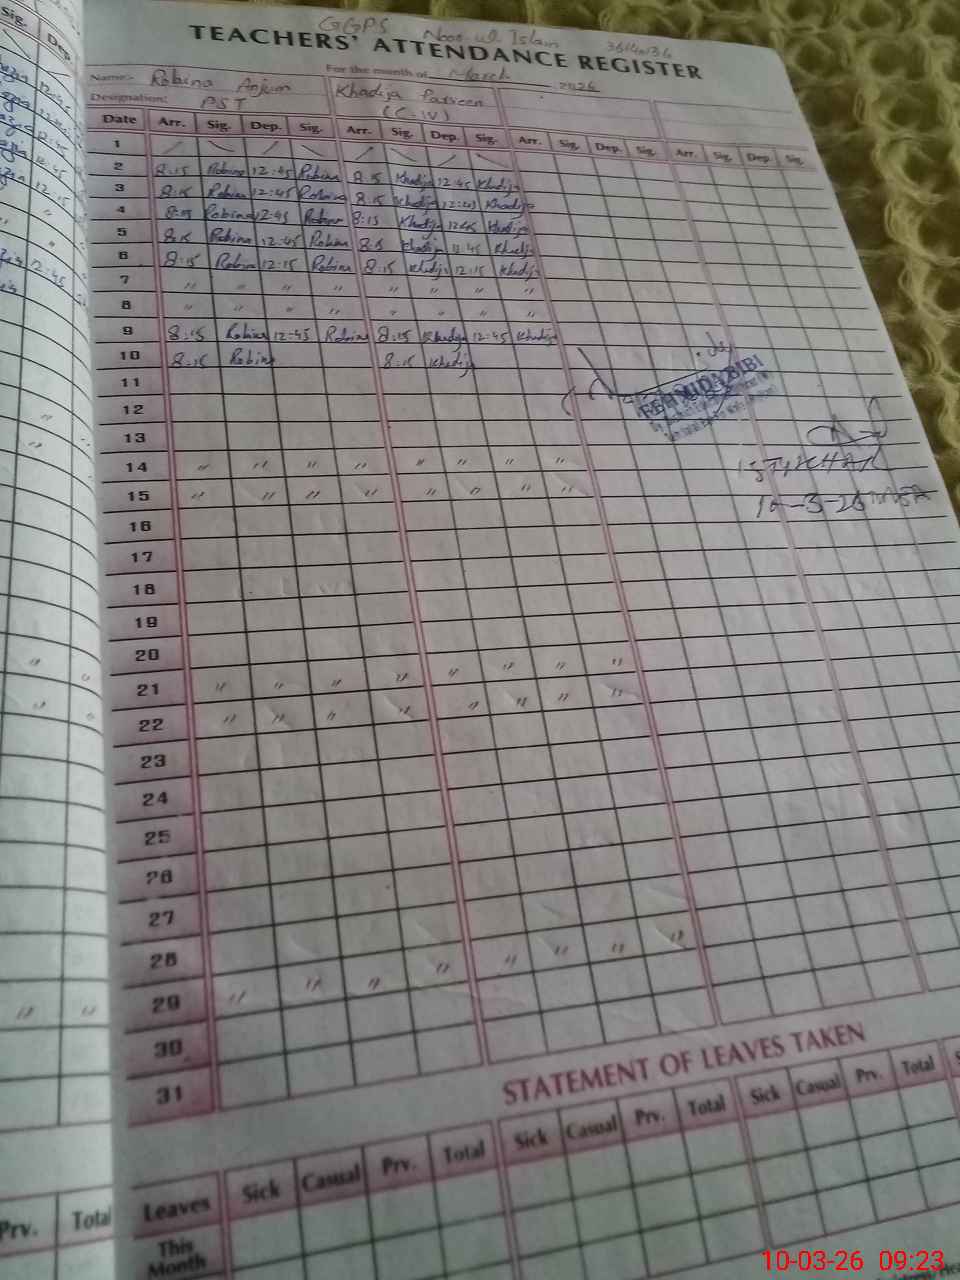 GGPS Noor-ul Islam
TEACHERS' ATTENDANCE REGISTER
For the month of March 2026
Name:- Robina Anjum Khadija Parveen
Designation: PST (C.IV)
Date Arr. Sig. Dep. Sig. Arr. Sig. Dep. Sig. Arr. Sig. Dep. Sig. Arr. Sig. Dep. Sig.
1
2 8:15 Robina 12:45 Robina 8:15 Khadija 12:45 Khadija
3 8:15 Robina 12:45 Robina 8:15 Khadija 12:45 Khadija
4 8:15 Robina 12:45 Robina 8:15 Khadija 12:45 Khadija
5 8:15 Robina 12:45 Robina 8:15 Khadija 12:45 Khadija
6 8:15 Robina 12:15 Robina 8:15 Khadija 12:15 Khadija
7 " " " " " " " "
8 " " " " " " " "
9 8:15 Robina 12:45 Robina 8:15 Khadija 12:45 Khadija
10 8:15 Robina 8:15 Khadija
11
12
13
14 " " " " " " " "
15 " " " " " " " "
16
17
18
19
20
21 " " " " " " " "
22 " " " " " " " "
23
24
25
26
27
28
29 " " " " " " " "
30
31
BIBI
10-3-26
STATEMENT OF LEAVES TAKEN
Leaves Sick Casual Prv. Total Sick Casual Prv. Total Sick Casual Prv. Total
This
Month
Sig. Dep.
12:45
Prv. Total
10-03-26 09:23